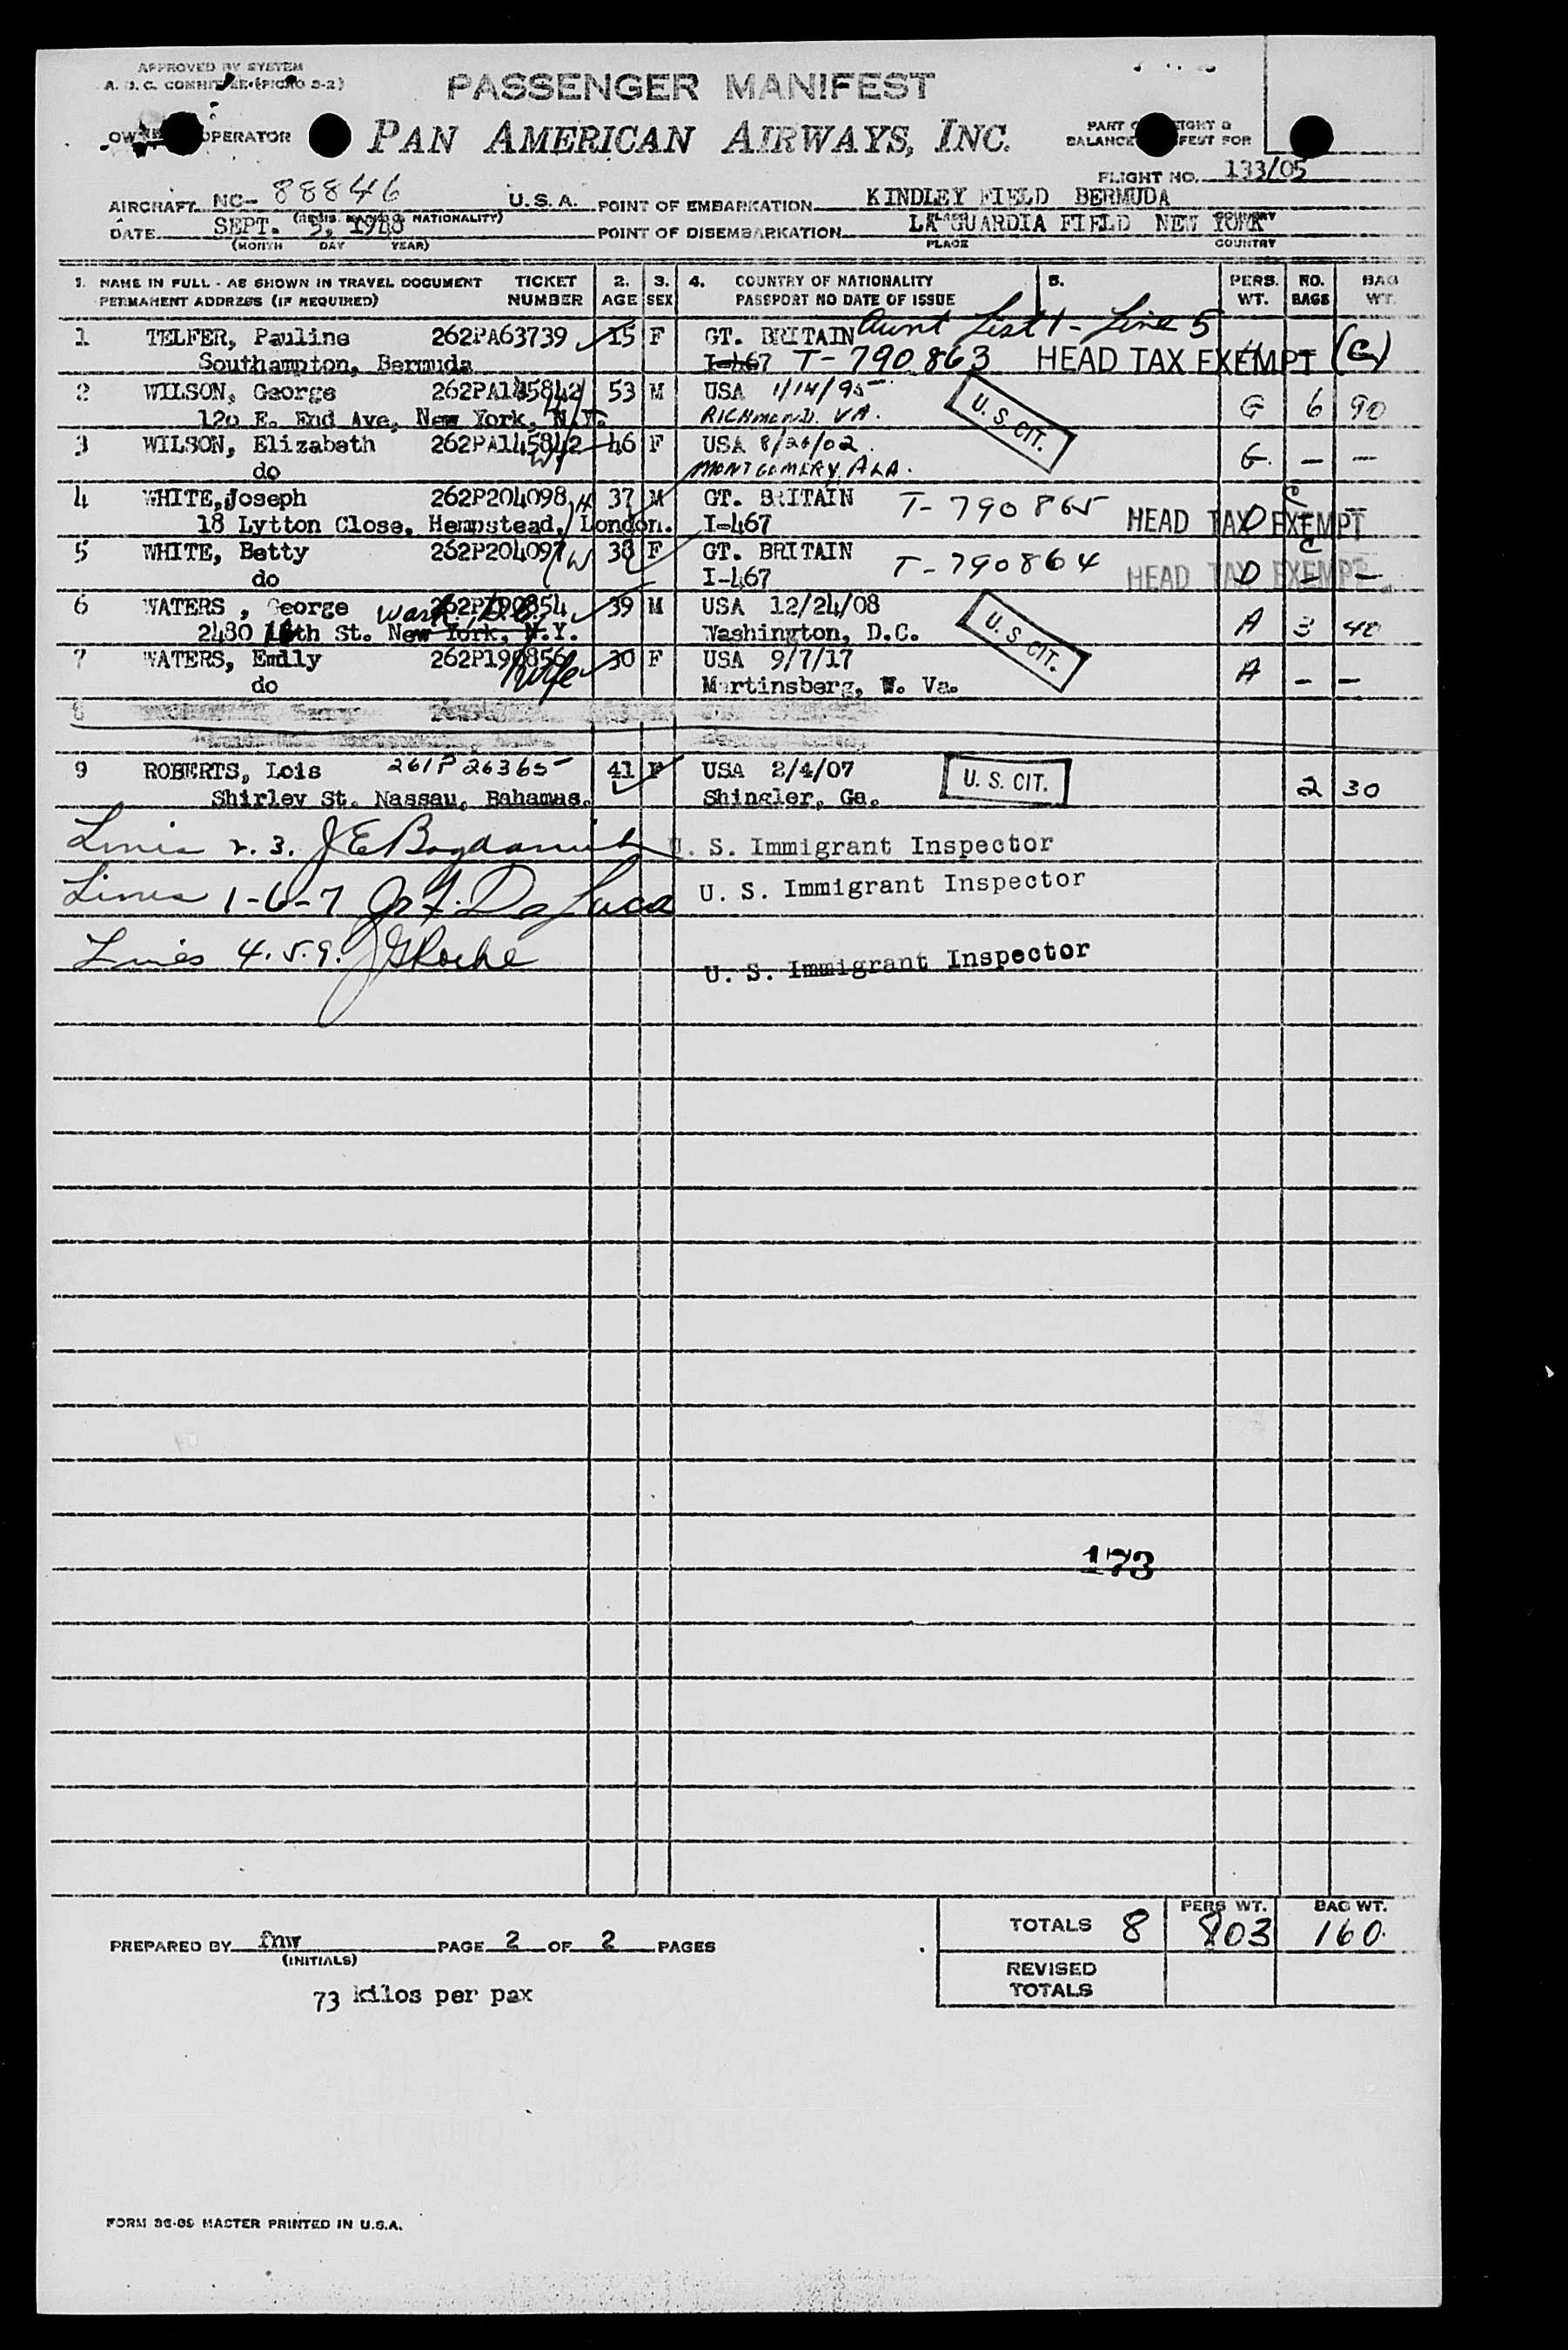 APPROVED BY SYSTEM
PASSENGER MANIFEST
OPERATOR
PAN AMERICAN AIRWAYS, INC.
FLIGHT NO. 133/05
AIRCRAFT NC- 88846 U.S.A. POINT OF EMBARKATION KINDLEY FIELD BERMUDA
DATE SEPT. 5, 1948 POINT OF DISEMBARKATION LA GUARDIA FIELD NEW YORK
(MONTH DAY YEAR) PLACE COUNTRY
1. NAME IN FULL - AS SHOWN IN TRAVEL DOCUMENT TICKET 2. 3. 4. COUNTRY OF NATIONALITY 5. PERS. NO. BAG
PERMANENT ADDRESS (IF REQUIRED) NUMBER AGE SEX PASSPORT NO DATE OF ISSUE WT. BAGS WT.
1 TELFER, Pauline 262PA63739 15 F GT. BRITAIN Aunt List 1 - Line 5
Southampton, Bermuda I-467 T-790863 HEAD TAX EXEMPT (C)
2 WILSON, George 262PA145842 53 M USA 1/14/95 U. S. CIT. G 6 90
120 E. End Ave, New York, N.Y. RICHMOND. VA.
3 WILSON, Elizabeth 262PA145842 46 F USA 8/26/02 G. — —
do MONTGOMERY, ALA.
4 WHITE, Joseph 262P204098 H 37 M GT. BRITAIN T-790865
18 Lytton Close, Hempstead, London. I-467 HEAD TAX EXEMPT D
5 WHITE, Betty 262P204097 W 38 F GT. BRITAIN T-790864
do I-467 HEAD TAX EXEMPT D — —
6 WATERS , George 262P190854 39 M USA 12/24/08 U. S. CIT. A 3 40
Wash. D.C.
2480 16th St. New York, N.Y. Washington, D.C.
7 WATERS, Emily 262P190856 Wife 30 F USA 9/7/17 A — —
do Martinsberg, W. Va.
8
9 ROBERTS, Lois 261P26365 41 F USA 2/4/07 U. S. CIT. 2 30
Shirley St. Nassau, Bahamas. Shingler, Ga.
Lines 2. 3. U. S. Immigrant Inspector
Lines 1-6-7 U. S. Immigrant Inspector
Lines 4. 5. 9. U. S. Immigrant Inspector
173
PERS WT. BAG WT.
TOTALS 8 803 160.
PREPARED BY fnw PAGE 2 OF 2 PAGES
(INITIALS)
REVISED
TOTALS
73 kilos per pax
FORM 36-69 MASTER PRINTED IN U.S.A.